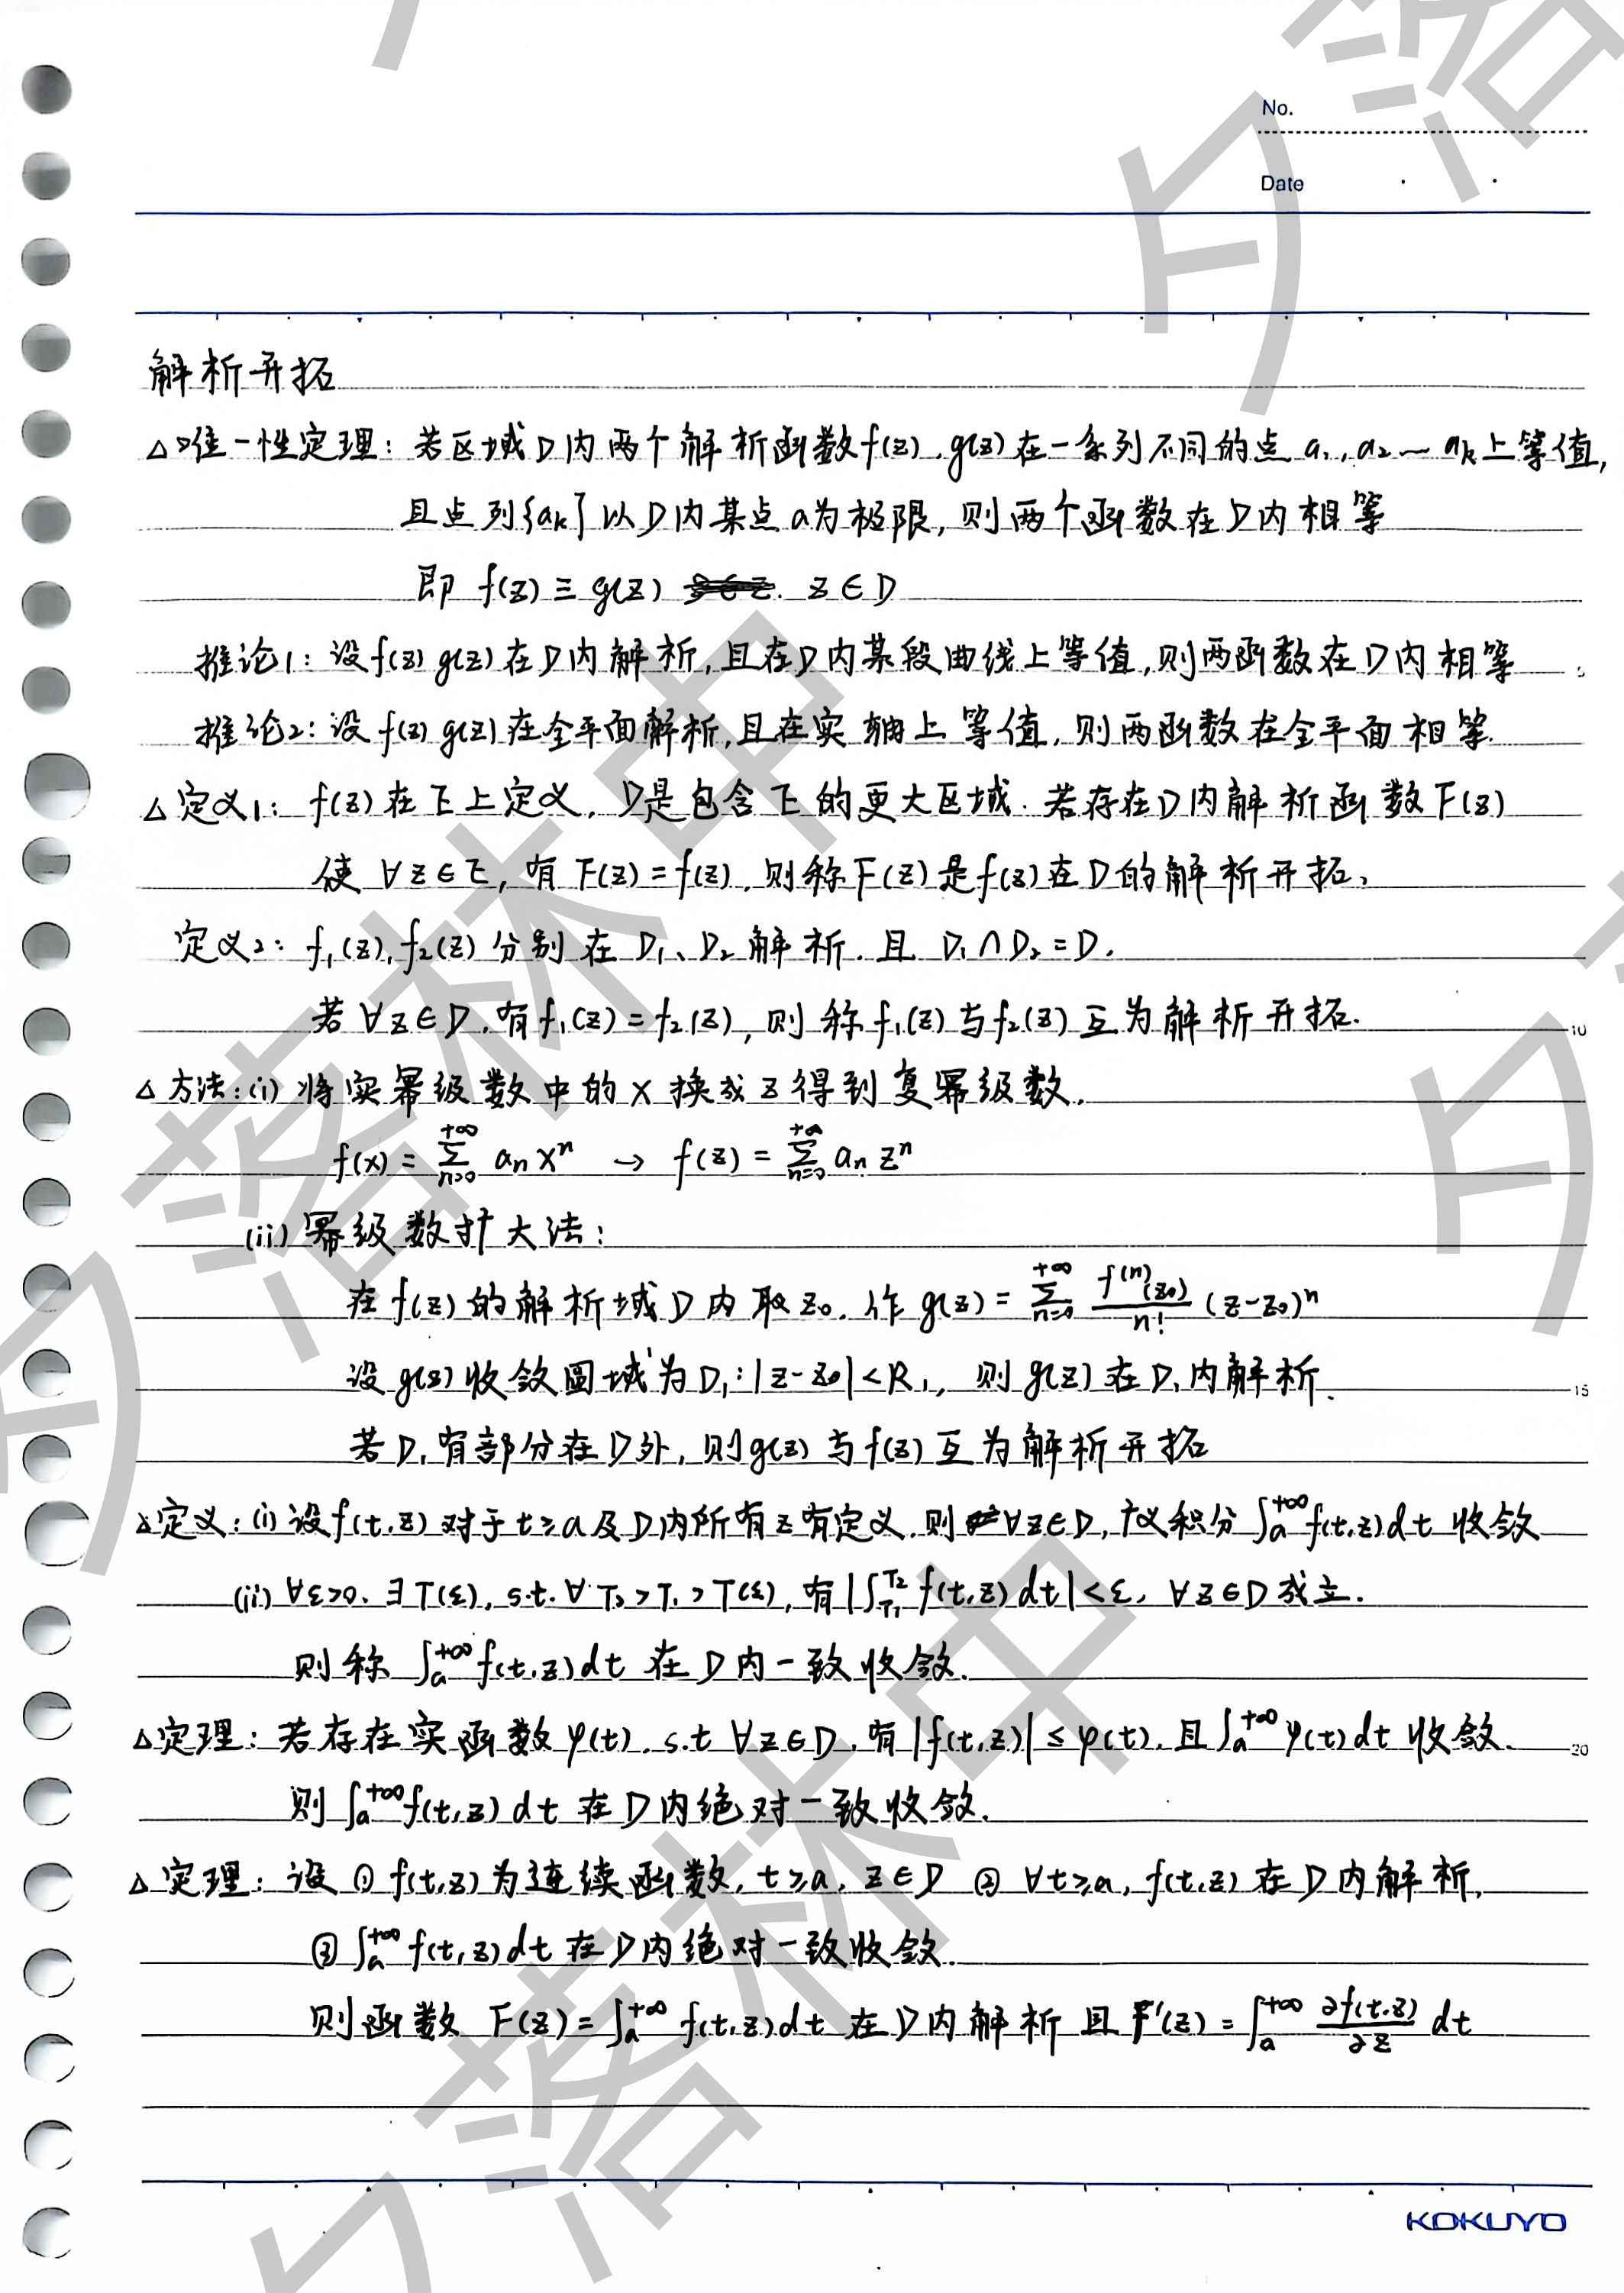 No.
Date
解析开拓
△ 唯一性定理：若区域D内两个解析函数f(z),g(z)在一系列不同的点 a₁,a₂…aₖ上等值,
且点列{aₖ}以D内某点a为极限,则两个函数在D内相等
即 f(z)≡g(z) z∈D
推论1：设f(z) g(z)在D内解析,且在D内某段曲线上等值,则两函数在D内相等
推论2：设f(z) g(z)在全平面解析,且在实轴上等值,则两函数在全平面相等.
△ 定义1：f(z)在E上定义,D是包含E的更大区域.若存在D内解析函数F(z)
使 ∀z∈E,有F(z)=f(z),则称F(z)是f(z)在D的解析开拓.
定义2：f₁(z),f₂(z)分别在D₁、D₂解析.且 D₁∩D₂=D.
若∀z∈D,有f₁(z)=f₂(z),则称f₁(z)与f₂(z)互为解析开拓.
10
△ 方法:(i) 将实幂级数中的x换成z得到复幂级数.
f(x)=∑_{n=0}^{+∞} aₙxⁿ → f(z)=∑_{n=0}^{+∞} aₙzⁿ
(ii) 幂级数扩大法：
在f(z)的解析域D内取z₀.作g(z)=∑_{n=0}^{+∞} f⁽ⁿ⁾(z₀)/n! (z-z₀)ⁿ
设g(z)收敛圆域为D₁:|z-z₀|<R₁, 则g(z)在D₁内解析.
15
若D₁有部分在D外,则g(z)与f(z)互为解析开拓
△定义：(i) 设f(t,z)对于t≥a及D内所有z有定义.则∀z∈D,广义积分∫_a^{+∞}f(t,z)dt 收敛
(ii) ∀ε>0.∃T(ε),s.t.∀T₂>T₁>T(ε),有|∫_{T₁}^{T₂}f(t,z)dt|<ε, ∀z∈D成立.
则称 ∫_a^{+∞}f(t,z)dt 在D内一致收敛.
△定理：若存在实函数φ(t),s.t ∀z∈D,有|f(t,z)|≤φ(t),且∫_a^{+∞}φ(t)dt收敛.
20
则∫_a^{+∞}f(t,z)dt在D内绝对一致收敛.
△定理：设 ① f(t,z)为连续函数,t≥a,z∈D ② ∀t≥a,f(t,z)在D内解析,
③∫_a^{+∞}f(t,z)dt在D内绝对一致收敛.
则函数 F(z)=∫_a^{+∞}f(t,z)dt 在D内解析 且F′(z)=∫_a^{+∞} ∂f(t,z)/∂z dt
KOKUYO
夕落林中
夕落林中